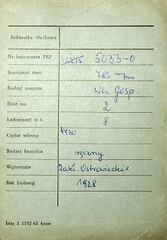 Jednostka służbowa
Nr inwentarza PKP 5033-0
Szerokość toru 785 mm
Rodzaj wagonu Węg. Gosp.
Ilość osi 2
Ładowność w t. 8
Ciężar własny 4430
Rodzaj hamulca ręczny
Wytwórnia Zakł. Ostrowieckie
Rok budowy 1928